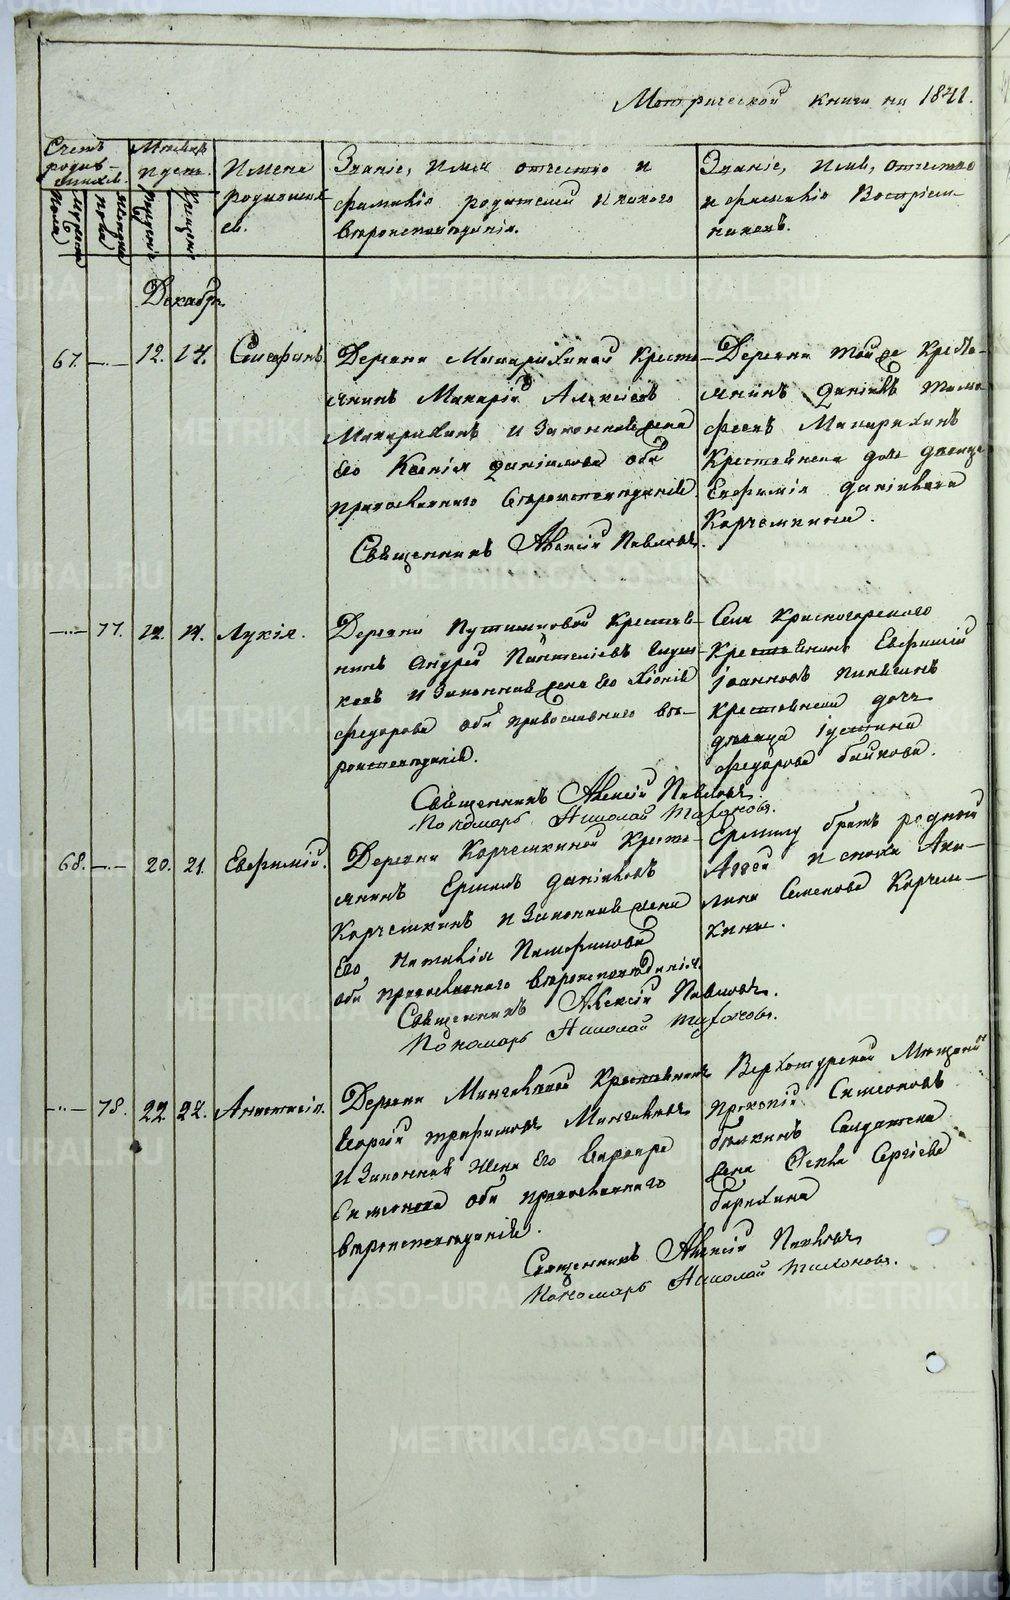 Метрической книги на 1841.
Счетъ родив-шихся.
Мужеска пола
Женска пола
Месяцъ
Рожденiя
Крещенiя
Имена
родивших-
ся.
Званiе, имя отчество и
фамилiя родителей и какого
вероисповеданiя.
Званiе, имя, отчество
и фамилiя Воспрiем-
никовъ.
Декабрь.
67. 12. 14. Серафимъ
Деревни Макарихиной Кресть-
янинъ Макарiй Алексiевъ
Макарихинъ и Законная жена
его Ксенiя Данiилова оба
православнаго вероисповеданiя
Священникъ Алексiй Павловъ.
Деревни той же Кресть-
янинъ Данiилъ Тимо-
феевъ Макарихинъ
Крестьянская дочь девица
Евфимiя Данiилова
Корчемкина.
77. 12. 14. Лукiя.
Деревни Путимцовой Крестья-
нинъ Андрей Пантелiевъ
и Законная жена его Хiонiя
Федорова оба Православнаго ве-
роисповеданiя.
Священникъ Алексiй Павловъ.
Пономарь Николай Тихоновъ.
Села Красногорскаго
Крестьянинъ Евфимiй
Iоанновъ Пинягинъ
Крестьянская дочь
девица Iустина
Федорова Быкова.
68. 20. 21. Евфимiй.
Деревни Корчемкиной Кресть-
янинъ Ермилъ Данiиловъ
Корчемкинъ и Законная жена
его Наталiя Памфилова
оба православнаго вероисповеданiя.
Священникъ Алексiй Павловъ.
Пономарь Николай Тихоновъ.
Ермилу братъ родной
Аггей и сноха Аки-
лина Семенова Корчем-
кины.
78. 22. 22. Анастасiя.
Деревни Мингалевой Крестьянинъ
Георгiй Трифоновъ Мингалевъ
и Законная Жена его Варвара
Симеонова оба православнаго
вероисповеданiя.
Священникъ Алексiй Павловъ,
Пономарь Николай Тихоновъ.
Верхотурской Мещанинъ
Прокопiй Симеоновъ
Белкинъ Солдатска
жена Фекла Сергiева
Барыкина
METRIKI.GASO-URAL.RU